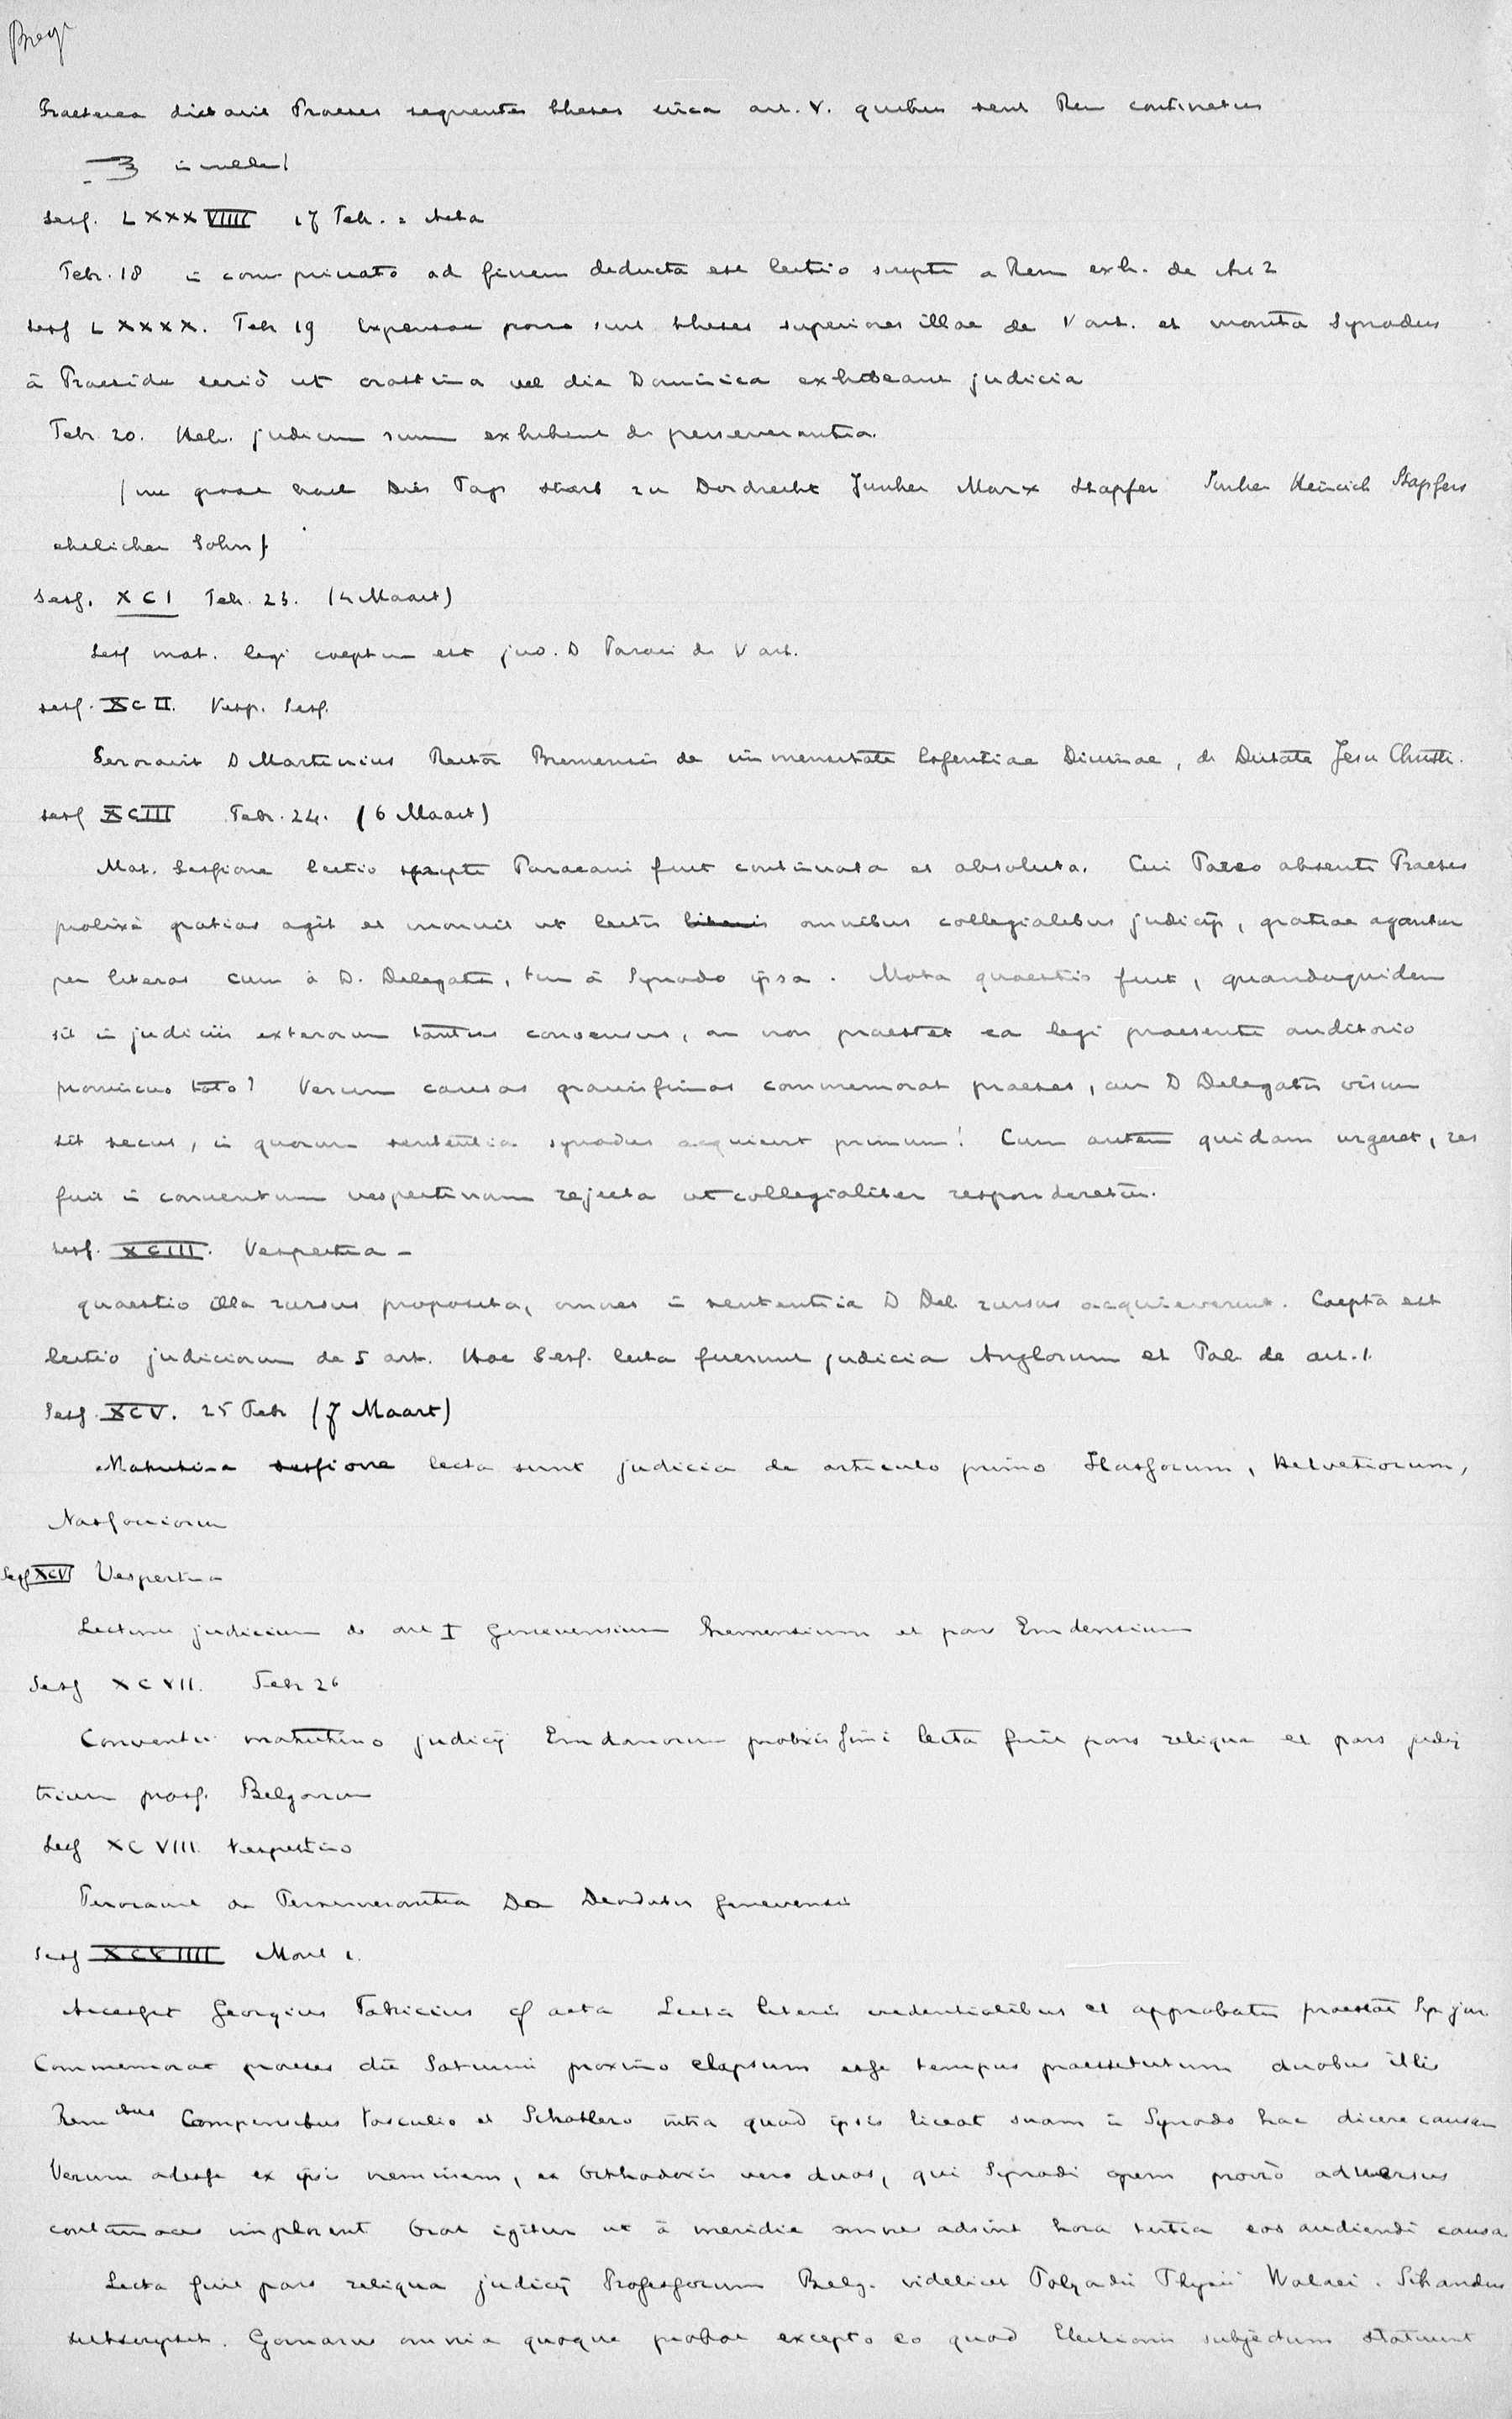 Breij
Praeterea dictavit Praeses sequentes theses circa art. V. quibus sent Rem continetur
in welke!
Sess. LXXXVIIII 17 Feb. = Acta
Febr. 18 in conv privato ad finem deducta est lectio scripti a Rem exh. de Art 2
Sess LXXXX. Feb 19 Expensae porro sunt theses superiores illae de V art. et monita Synodus
à Praeside seriò ut crastina vel die Dominica exhibeant judicia
Febr. 20. Helv. judicium suum exhibent de perseverantia.
ehelicher Sohn/
Sess. XCI Feb. 23. (4 Maart)
Sess mat. legi coeptum est jud. D Paraei de V art.
Sess. XCII. Vesp. Sess.
Peroravit D Martinius Rector Bremensis de immensitate Essentiae Divinae, de Deitate Jesu Christi.
Sess XCIII Febr. 24. (6 Maart)
Mat. Sessione lectio scripti Paraeani fuit continuata et absoluta. Cui Paraeo absenti Praeses
prolixè gratias agit et monuit ut lectis literis omnibus collegialibus judicijs, gratiae agantur
per literas cum à D. Delegatis, tum à Synodo ipsa. Mota quaestio fuit, quandoquidem
sit in judiciis exterorum tantus consensus, an non praestet ea legi praesente auditorio
promiscuo toto? Verum causas gravissimas commemorat praeses, cur D Delegatis visum
sit secus, in quorum sententia synodus acquievit primum! Cum autem quidam urgeret, res
fuit in conventum vespertinum rejecta ut collegialiter responderetur.
Sess. XCIIII. Vespertina –
quaestio illa rursus proposita, omnes in sententia D Del. rursus acquieverunt. Coepta est
lectio judiciorum de 5 art. Hac Sess. lecta fuerunt judicia Anglorum et Pal. de art. 1.
Sess. XCV. 25 Feb (7 Maart)
Matutina sessione lecta sunt judicia de articulo primo Hassorum, Helvetiorum,
Nassoviorum
Sess XCVI Vespertina
Lectum judicium de art I Genevensium Bremensium et pars Emdensium
Sess XCVII. Feb 26
Conventu matutino judicij Emdanorum prolixissimi lecta fuit pars reliqua et pars judicij
trium prof. Belgorum
Sess XCVIII. Vespertino
Peroravit de Perseverantia Do Deodatus Genevensis
Sess XCVIIII Mart 1.
Accessit Georgius Fabricius cf acta Lectis literis credentialibus et approbatis praestat Syn jur.
Commemorat praeses die Saturni proximo elapsum esse tempus praestitutum duobus illis
Rem tibus Campensibus Vosculio et Schotlero intra quod ipsis liceat suam in Synodo hac dicere causam
Verum adesse ex ipsis neminem, ex Orthodoxis vero duos, qui Synodi opem porrò adversus
contumaces implorent Orat igitur ut à meridie omnes adsint hora tertia eos audiendi causa
Lecta fuit pars reliqua judicij Professorum Belg. videlicet Polyandri Thysii Walaei. Sibrandus
subscripsit. Gomarus omnia quoque probat excepto eo quod Electionis subjectum statuunt